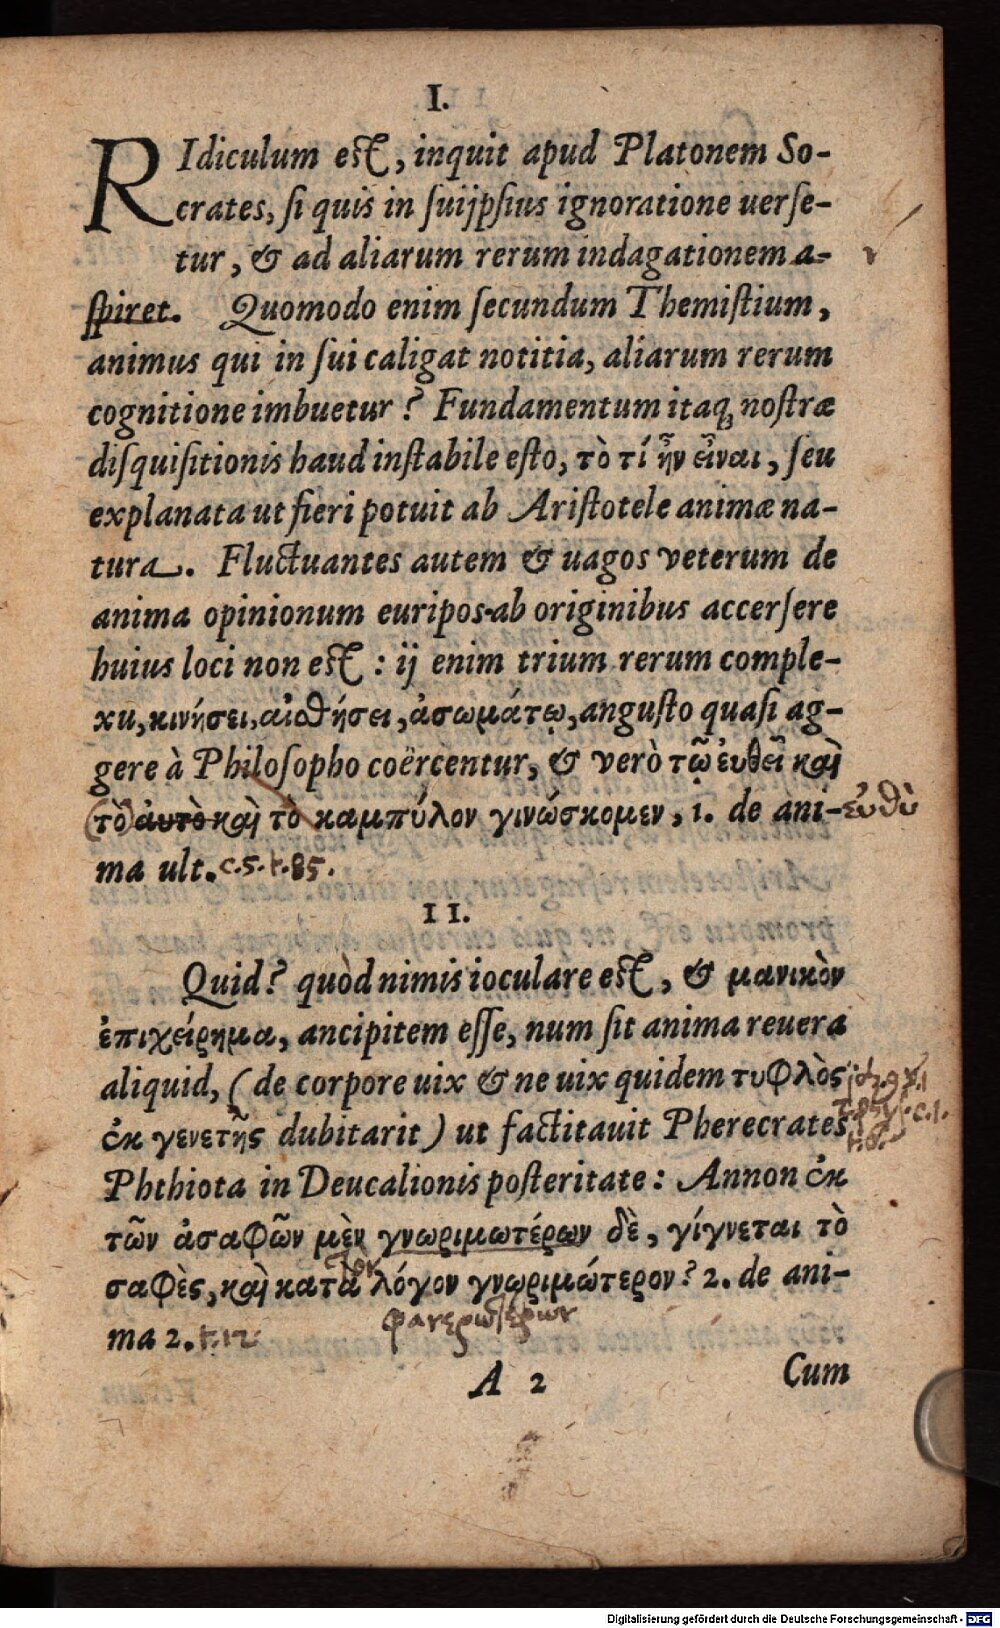 I.
RIdiculum est, inquit apud Platonem So-
crates, ſi quis in ſuijpſius ignoratione uerſe-
tur, & ad aliarum rerum indagationem a-
ſpiret. Quomodo enim ſecundum Themiſtium,
animus qui in ſui caligat notitia, aliarum rerum
cognitione imbuetur? Fundamentum itaq; noſtræ
diſquiſitionis haud inſtabile eſto, τὸ τί ἦν εἶναι, ſeu
explanata ut fieri potuit ab Ariſtotele animæ na-
tura. Fluctuantes autem & uagos veterum de
anima opinionum euripos ab originibus accerſere
huius loci non est: ij enim trium rerum comple-
xu, κινήσει, αἰσθήσει, ἀσωμάτῳ, anguſto quaſi ag-
gere à Philoſopho coërcentur, & verò τῷ ἐυθεῖ καὶ
τὸ ἀυτὸ καὶ τὸ καμπύλον γινώσκομεν, 1. de ani- εὐθὺ
ma ult. c.5.t.85.
II.
Quid? quòd nimis ioculare est, & μανικὸν
ἐπιχείρημα, ancipitem eſſe, num ſit anima reuera
aliquid, (de corpore uix & ne uix quidem τυφλὸς
ἐκ γενετῆς dubitarit) ut factitauit Pherecrates
Phthiota in Deucalionis poſteritate: Annon ἐκ
τῶν ἀσαφῶν μὲν γνωριμωτέρων δὲ, γίγνεται τὸ
σαφὲς, καὶ κατὰ τὸν λόγον γνωριμώτερον? 2. de ani-
φανερωτέρων
ma 2. t.12
A 2 Cum
Digitalisierung gefördert durch die Deutsche Forschungsgemeinschaft - DFG